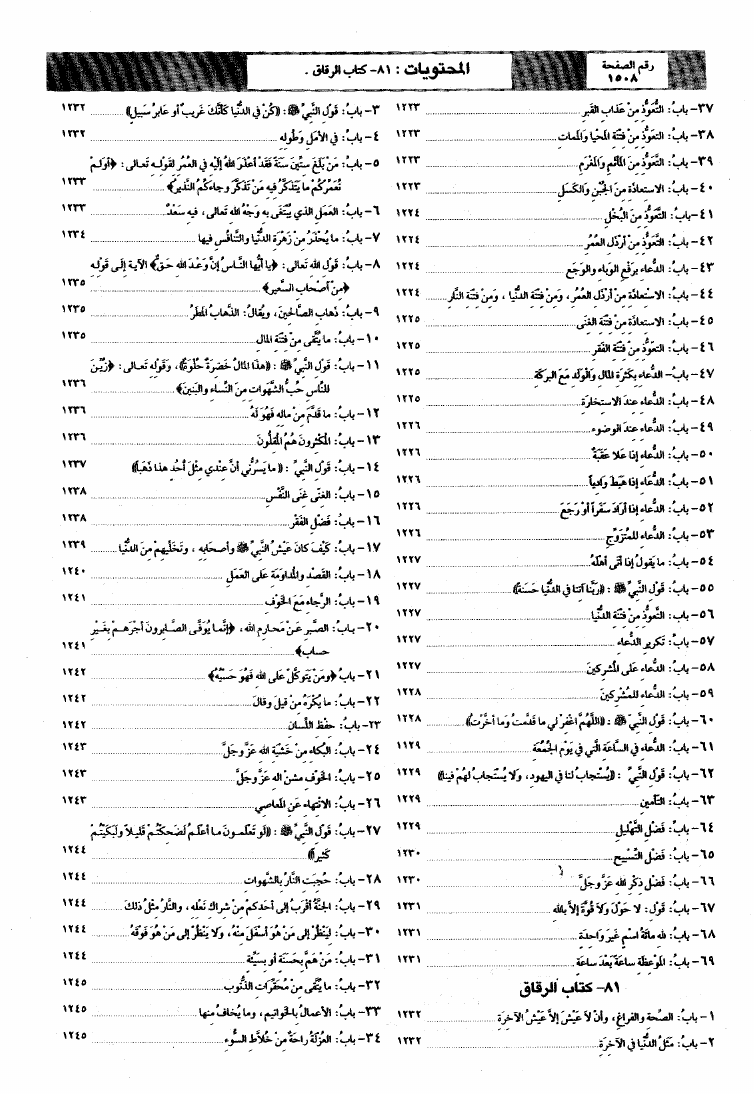 رقم الصفحة
١٥٠٨
المحتويات : ٨١- كتاب الرقاق .
٣٧- باب: التَّعَوُّذِ مِنْ عَذَابِ القَبرِ ١٢٢٣
٣٨- باب: التعَوُّذِ مِنْ فِتْنَةِ المَحْيا والمَماتِ ١٢٢٣
٣٩- باب: التَّعَوُّذِ مِنَ المأْثَمِ والمَغْرَمِ ١٢٢٣
٤٠- باب: الاستعاذَةِ مِنَ الجُبْنِ والكَسَلِ ١٢٢٣
٤١- باب: التَّعَوُّذِ مِنَ البُخْلِ ١٢٢٤
٤٢- باب: التَّعَوُّذِ مِنْ أرْذَلِ العُمُرِ ١٢٢٤
٤٣- باب: الدُّعاءِ بِرَفْعِ الوَباءِ والوَجَعِ ١٢٢٤
٤٤- باب: الاستعاذَةِ مِنْ أرْذَلِ العمُرِ، ومِنْ فتنَةِ الدُّنْيا ، ومِنْ فتنةِ النَّارِ ١٢٢٤
٤٥- باب: الاستعاذَةِ مِنْ فتنَةِ الغِنَى ١٢٢٥
٤٦- باب: التعَوُّذِ مِنْ فتنَةِ الفَقْرِ ١٢٢٥
٤٧- باب- الدُّعاءِ بِكَثْرَةِ المَالِ والْوَلَدِ مَعَ البَركَةِ ١٢٢٥
٤٨- باب: الدُّعاءِ عندَ الاستخارَةِ ١٢٢٥
٤٩- باب: الدُّعاءِ عندَ الوضوءِ ١٢٢٦
٥٠- باب: الدُّعاءِ إذا عَلا عَقَبَةً ١٢٢٦
٥١- باب: الدُّعاءِ إذا هَبَطَ وَادِياً ١٢٢٦
٥٢- باب: الدُّعاءِ إذا أرَادَ سَفَراً أوْ رَجَعَ ١٢٢٦
٥٣- باب: الدُّعاءِ للمُتَزَوِّجِ ١٢٢٦
٥٤- باب: ما يَقولُ إذا أتَى أهلَهُ ١٢٢٧
٥٥- باب: قَوْلِ النَّبيِّ ﷺ : ((رَبَّنا آتنا في الدُّنيا حَسَنَةً)) ١٢٢٧
٥٦- باب: التَّعَوُّذِ مِنْ فتنَةِ الدُّنْيا ١٢٢٧
٥٧- باب: تَكْريرِ الدُّعاءِ ١٢٢٧
٥٨- باب: الدُّعاءِ عَلَى المُشْرِكينَ ١٢٢٧
٥٩- باب: الدُّعاءِ للمُشْرِكينَ ١٢٢٨
٦٠- باب: قَوْلِ النَّبيِّ ﷺ : ((اللَّهُمَّ اغْفِرْ لي ما قدَّمتُ ومَا أخَّرْتُ)) ١٢٢٨
٦١- باب: الدُّعاءِ في السَّاعَةِ الَّتي في يَوْمِ الجُمُعَةِ ١١٢٩
٦٢- باب: قَوْلِ النَّبيِّ : ((يُسْتجابُ لنا في اليهودِ، ولا يُسْتجابُ لهُمْ فينا)) ١٢٢٩
٦٣- باب: التأمينِ ١٢٢٩
٦٤- بابُ: فَضْلِ التَّهْليلِ ١٢٢٩
٦٥- باب: فَضْلِ التَّسْبيحِ ١٢٣٠
٦٦- باب: فَضْلِ ذِكْرِ للهِ عَزَّ وجَلَّ ١٢٣٠
٦٧- باب: قَوْلِ: لا حَوْلَ ولا قُوَّةَ إلاَّ باللهِ ١٢٣١
٦٨- باب: للهِ مائَةُ اسمٍ غَيْرَ واحدَة ١٢٣١
٦٩- باب: المَوْعظَةِ ساعَةً بَعْدَ ساعَةٍ ١٢٣١
٨١- كتاب الرقاق
١- باب: الصِّحَّةِ والفراغِ، وأنْ لاَ عَيْشَ إلاَّ عَيْشُ الآخرَةِ ١٢٣٢
٢- باب: مَثَلِ الدُّنْيا في الآخرَةِ ١٢٣٢
٣- باب: قَوْلِ النَّبيِّ ﷺ: ((كُنْ في الدُّنْيا كَأنَّكَ غَريبٌ أو عابرُ سَبيلٍ)) ١٢٣٢
٤- باب: في الأمَلِ وطُولِهِ ١٢٣٢
٥- باب: مَنْ بَلَغَ ستِّينَ سَنَةً فَقَدْ أعْذَرَ اللهُ إلَيْهِ في العُمُرِ لقولِهِ تعالى: ﴿أوَلَمْ
نُعَمِّرْكُمْ ما يَتَذَكَّرُ فيهِ مَنْ تَذَكَّرَ وجاءكُمُ النَّذيرُ﴾ ١٢٣٣
٦- باب: العَمَلِ الذي يُبْتَغَى به وَجْهُ للهِ تعالى، فيهِ سَعْدٌ ١٢٣٣
٧- باب: ما يُحْذَرُ مِنْ زَهْرَةِ الدُّنْيا والتَّنافُسِ فيها ١٢٣٤
٨- باب: قَوْلِ اللهِ تعالى: ﴿يا أيُّها النَّاسُ إنَّ وَعْدَ اللهِ حَقٌّ﴾ الآيةَ إلى قَوْلِهِ
﴿مِنْ أصْحابِ السَّعيرِ﴾ ١٢٣٥
٩- باب: ذَهابِ الصَّالحينَ، ويُقالُ: الذَّهابُ المطَرُ ١٢٣٥
١٠- باب: ما يُتَّقَى مِنْ فتنَةِ المالِ ١٢٣٥
١١- باب: قَوْلِ النَّبيِّ : ((هذا المَالُ خَضِرَةٌ حُلْوَةٌ))، وقَوْلِهِ تعالى: ﴿زُيِّنَ
للنَّاسِ حُبُّ الشَّهَواتِ مِنَ النِّساءِ والبَنينَ﴾ ١٢٣٦
١٢- باب: ما قَدَّمَ مِنْ مالِهِ فَهُوَ لَهُ ١٢٣٦
١٣- باب: المُكْثِرُونَ هُمُ المُقِلُّونَ ١٢٣٦
١٤- باب: قَوْلِ النَّبيِّ : ((ما يَسُرُّني أنَّ عندي مِثْلَ أُحُدٍ هذا ذَهَباً)) ١٢٣٧
١٥- باب: الغِنَى غِنَى النَّفْسِ ١٢٣٨
١٦- باب: فَضْلِ الفَقْرِ ١٢٣٨
١٧- باب: كَيْفَ كانَ عَيْشُ النَّبيِّ ﷺ وأصحابِهِ ، وتَخَلِّيهِمْ مِنَ الدُّنْيا ١٢٣٩
١٨- باب: القَصْدِ والمُداوَمَةِ على العَمَلِ ١٢٤٠
١٩- باب: الرَّجاءِ مَعَ الخَوْفِ ١٢٤١
٢٠- باب: الصَّبرِ عَنْ مَحارِمِ الله، ﴿إنَّما يُوَفَّى الصَّابِرونَ أجْرَهُمْ بغَيْرِ
حساب﴾ ١٢٤١
٢١- باب ﴿ومَنْ يَتَوَكَّلْ عَلَى للهِ فَهُوَ حَسْبُهُ﴾ ١٢٤٢
٢٢- باب: ما يُكْرَهُ مِنْ قيلَ وقالَ ١٢٤٢
٢٣- باب: حِفْظِ اللِّسان ١٢٤٢
٢٤- باب: البُكاءِ مِنْ خَشْيَةِ للهِ عَزَّ وجَلَّ ١٢٤٣
٢٥- باب: الخَوْفِ مشن اله عَزَّ وجَلَّ ١٢٤٣
٢٦- باب: الانتهاءِ عَنِ المَعاصي ١٢٤٣
٢٧- باب: قَوْلِ النَّبيِّ ﷺ : ((لَوْ تَعْلَمونَ ما أعلَمُ لَضَحِكْتُمْ قَليلاً ولَبَكَيْتُمْ
كثيراً)) ١٢٤٤
٢٨- باب: حُجِبَتِ النَّارُ بالشَّهوات ١٢٤٤
٢٩- باب: الجَنَّةُ أقْرَبُ إلى أحَدِكُمْ مِنْ شِراكِ نَعْلِهِ، والنَّارُ مثْلُ ذلك ١٢٤٤
٣٠- باب: ليَنْظُرْ إلى مَنْ هُوَ أسْفَلَ مِنْهُ، ولا يَنْظُرْ إلى مَنْ هُوَ فَوْقَهُ ١٢٤٤
٣١- باب: مَنْ هَمَّ بِحَسَنَةٍ أو بِسَيِّئَةٍ ١٢٤٤
٣٢- باب: ما يُتَّقَى مِنْ مُحَقَّراتِ الذُّنُوبِ ١٢٤٥
٣٣- باب: الأعمالُ بالخَواتيمِ، وما يُخافُ منها ١٢٤٥
٣٤- باب: العُزْلَةُ راحَةٌ مِنْ خُلَّاطِ السُّوءِ ١٢٤٥